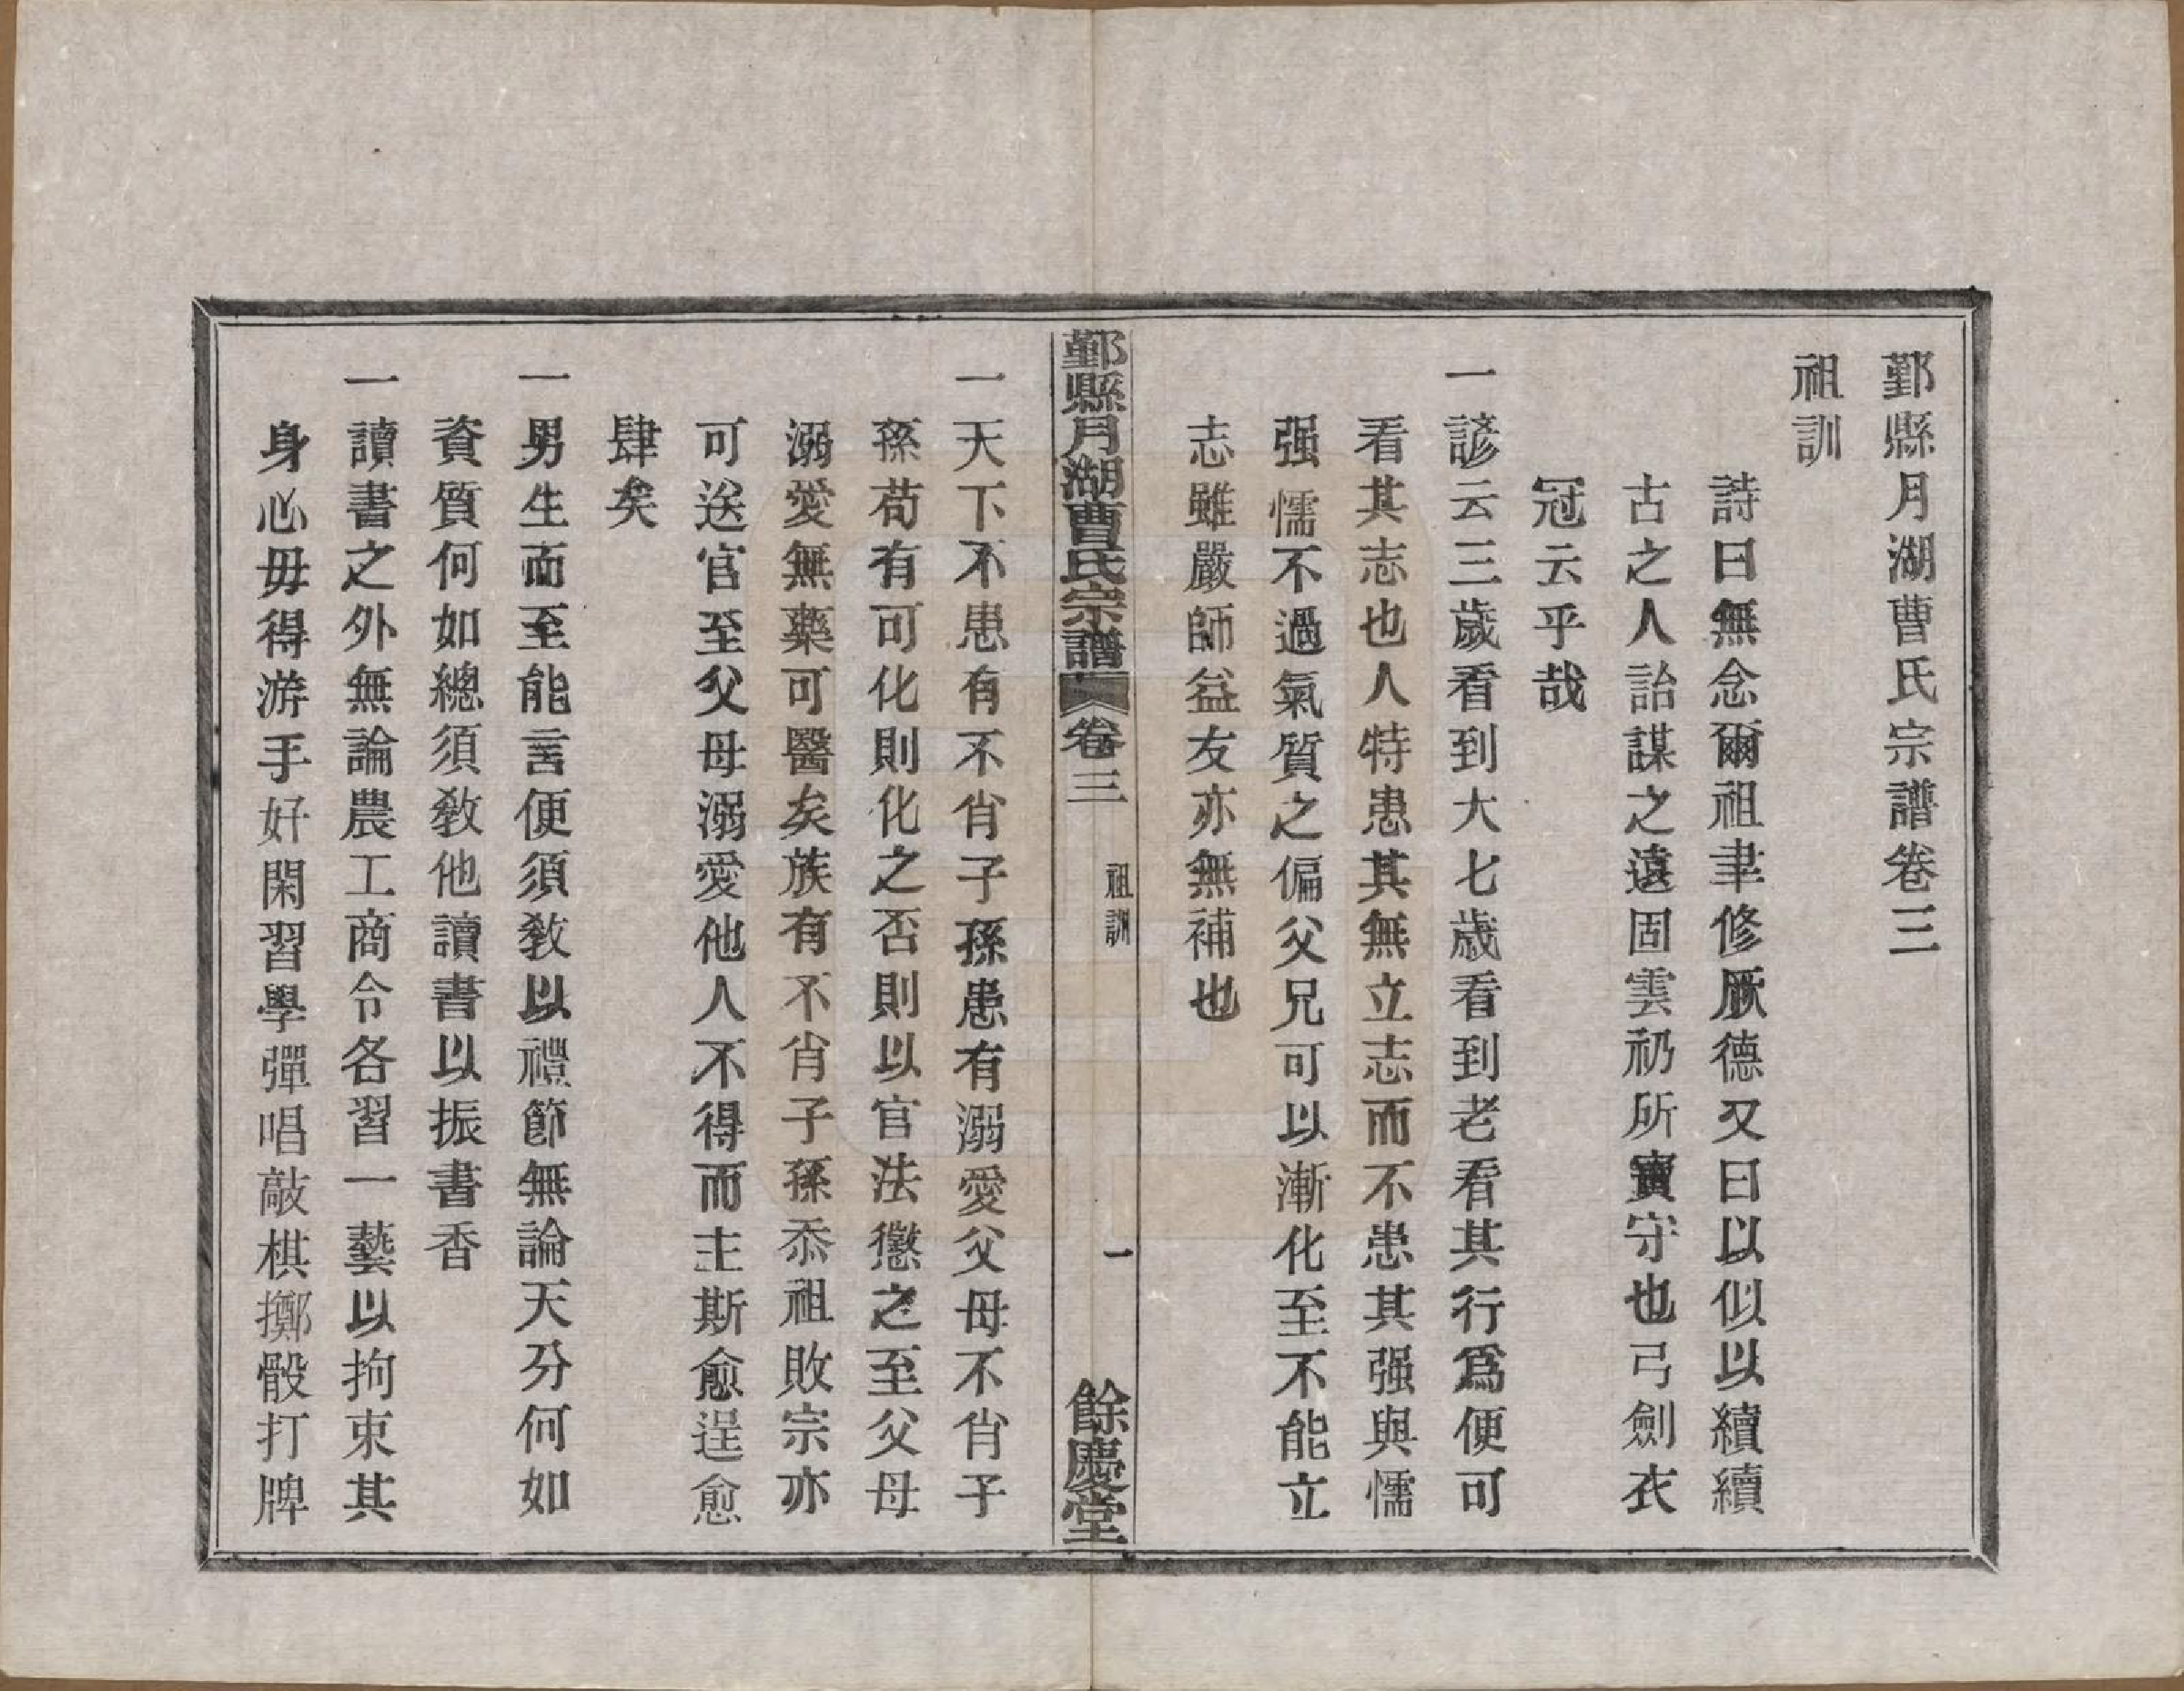 鄞縣月湖曹氏宗譜卷三
祖訓
詩曰無念爾祖聿修厥德又曰以似以續續
古之人詒謀之遠固雲礽所寶守也弓劍衣
冠云乎哉
一諺云三歲看到大七歲看到老看其行爲便可
看其志也人特患其無立志而不患其强與懦
强懦不過氣質之偏父兄可以漸化至不能立
志雖嚴師益友亦無補也
鄞縣月湖曹氏宗譜 卷三 祖訓 一 餘慶堂
一天下不患有不肖子孫患有溺愛父母不肖子
孫苟有可化則化之否則以官法懲之至父母
溺愛無藥可醫矣族有不肖子孫忝祖敗宗亦
可送官至父母溺愛他人不得而主斯愈逞愈
肆矣
一男生而至能言便須敎以禮節無論天分何如
資質何如總須敎他讀書以振書香
一讀書之外無論農工商令各習一藝以拘束其
身心毋得游手好閑習學彈唱敲棋擲骰打牌